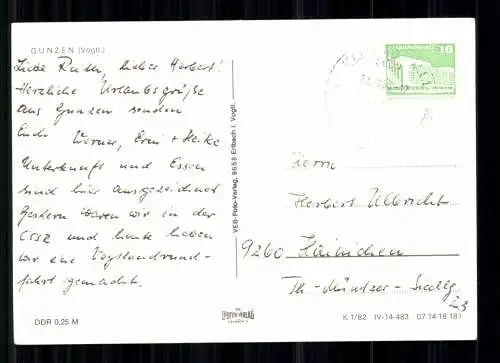 GUNZEN (Vogtl.)
Liebe Ruth, lieber Herbert!
Herzliche Urlaubsgrüße
aus Gunzen senden
Euch Werner, Erni + Heike
Unterkunft und Essen
sind hier ausgezeichnet
Gestern waren wir in der
CSSZ und heute haben
wir eine Vogtlandrund-
fahrt gemacht.
DDR 0,25 M
VEB-Foto-Verlag, 9653 Erlbach i. Vogtl.
FOTO-VERLAG
ERLBACH
10
Herrn
Herbert Ulbricht
9260 Hainichen
Th-Müntzer-Siedlg
23
K 1/82 IV-14-483 07 14 18 181